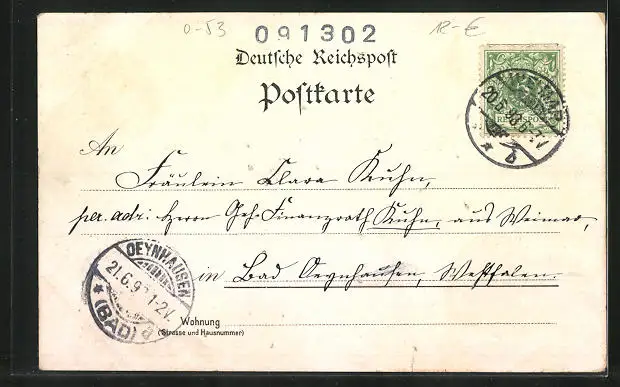 0-53
091302
12-€
Deutsche Reichspost
Postkarte
WEIMAR
20.6.98.6-7.N
b
REICHSPOST
An
Fräulein Clara Kuhn,
per. adr: Herrn Geh. Finanzrath Kuhn, aus Weimar,
in Bad Oeynhausen, Westfalen.
OEYNHAUSEN
21.6.9
1-2V.
(BAD) a
Wohnung
(Strasse und Hausnummer)